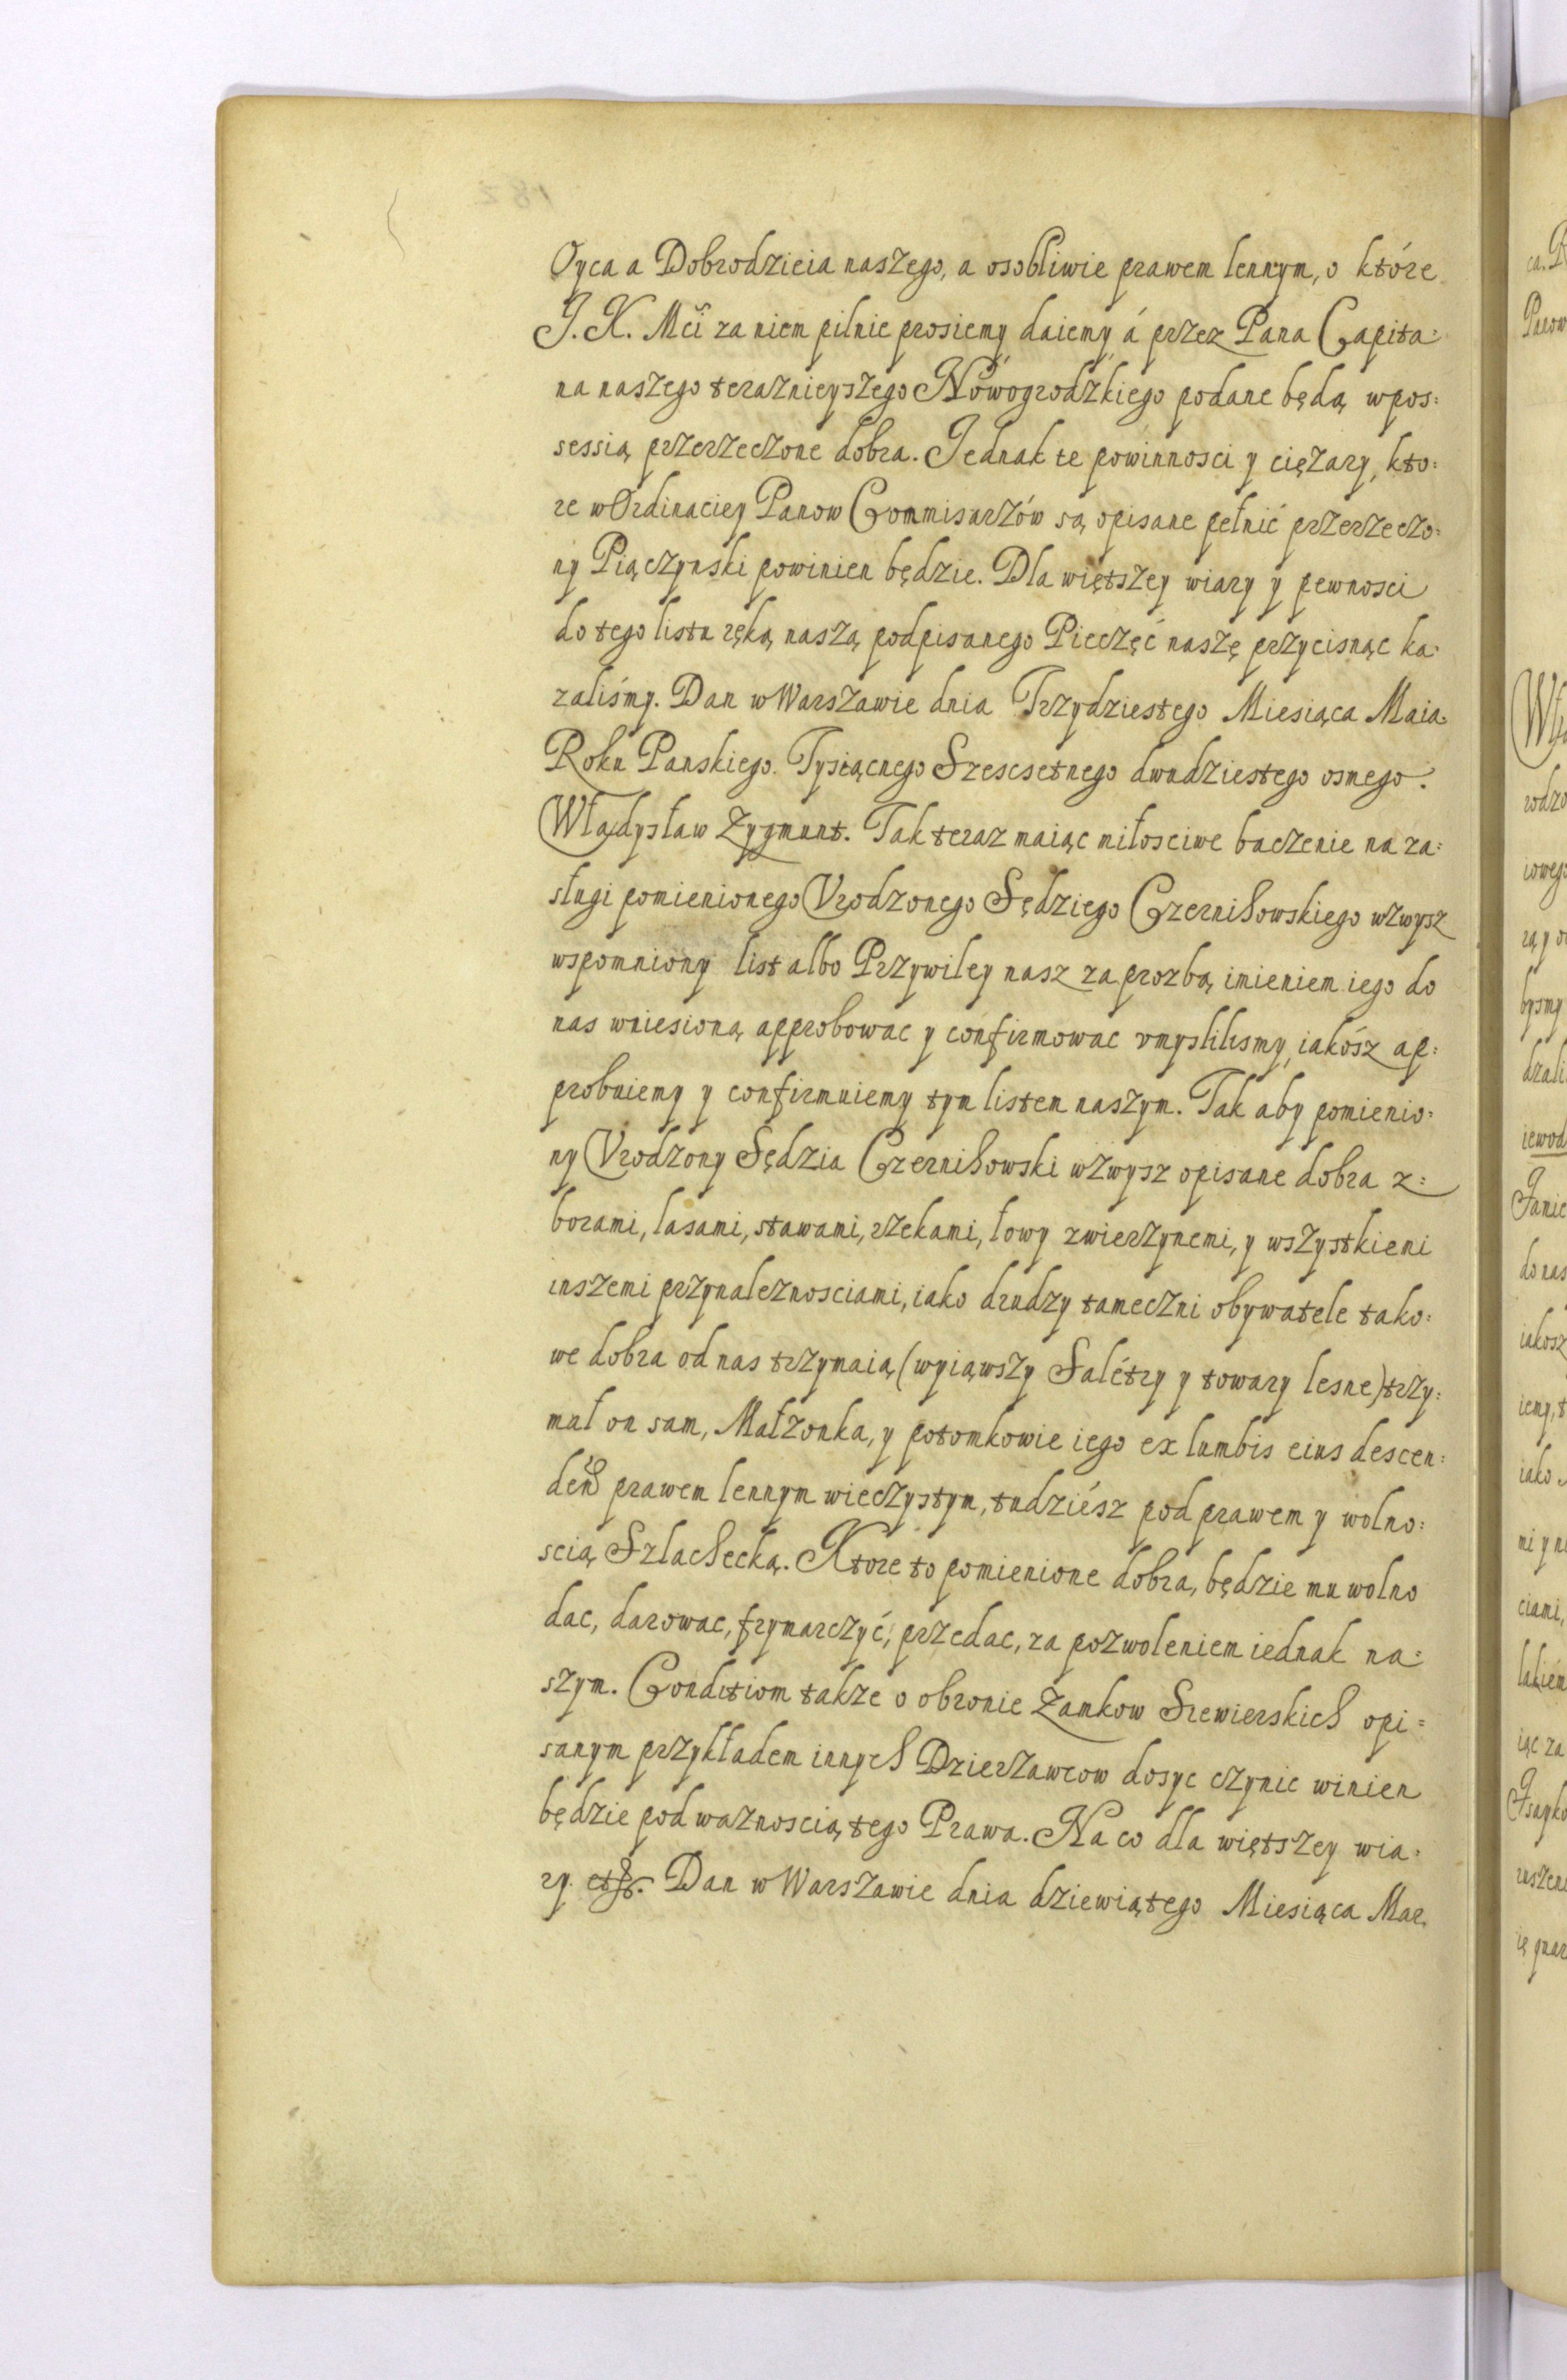 Oyca a Dobrodzieia naszego, a osobliwie prawem lennym, o które
J. K. Mći za niem pilnie prosiemy daiemy á przez Pana Capita:
na naszego teraznieyszego Nowogrodzkiego podane będą w pos:
sessią przerzeczone dobra. Jednak te powinnosci y ciężary, kto:
re w Ordinaciey Panow Commisarzów są opisane pełnić przerzeczo:
ny Piączynski powinien będzie. Dla więtszey wiary y pewnosci
do tego listu ręką naszą podpisanego Pieczęć naszę przycisnąc ka:
zaliśmy. Dan w Warszawie dnia Trzydziestego Miesiąca Maia
Roku Panskiego. Tysiącnego Szescsetnego dwudziestego osmego.
Władysław Zygmunt. Tak teraz maiąc miłosciwe baczenie na za:
sługi pomienionego Vrodzonego Sędziego Czernihowskiego wzwysz
wspomniony list albo Przywiley nasz za prozbą imieniem iego do
nas wniesioną approbowac y confirmowac vmyslilismy, iakósz ap:
probuiemy y confirmuiemy tym listem naszym. Tak aby pomienio:
ny Vrodzony Sędzia Czernihowski wzwysz opisane dobra z:
borami, lasami, stawami, rzekami, łowy zwierzynemi, y wszystkiemi
inszemi przynaleznosciami, iako drudzy tameczni obywatele tako:
we dobra od nas trzymaią (wyiąwszy Salétry y towary lesne) trzy:
mał on sam, Małzonka, y potomkowie iego ex lumbis eius descen:
den prawem lennym wieczystym, tudziész pod prawem y wolno:
scią Szlachecką. Ktore to pomienione dobra, będzie mu wolno
dac, darowac, frymarczyć, przedac, za pozwoleniem iednak na:
szym. Conditiom takze o obronie Zamkow Siewierskich opi:
sanym przykładem innych Dzierzawcow dosyc czynic winien
będzie pod waznoscią tego Prawa. Na co dla więtszey wia:
ry. etc. Dan w Warszawie dnia dziewiątego Miesiąca Mar,